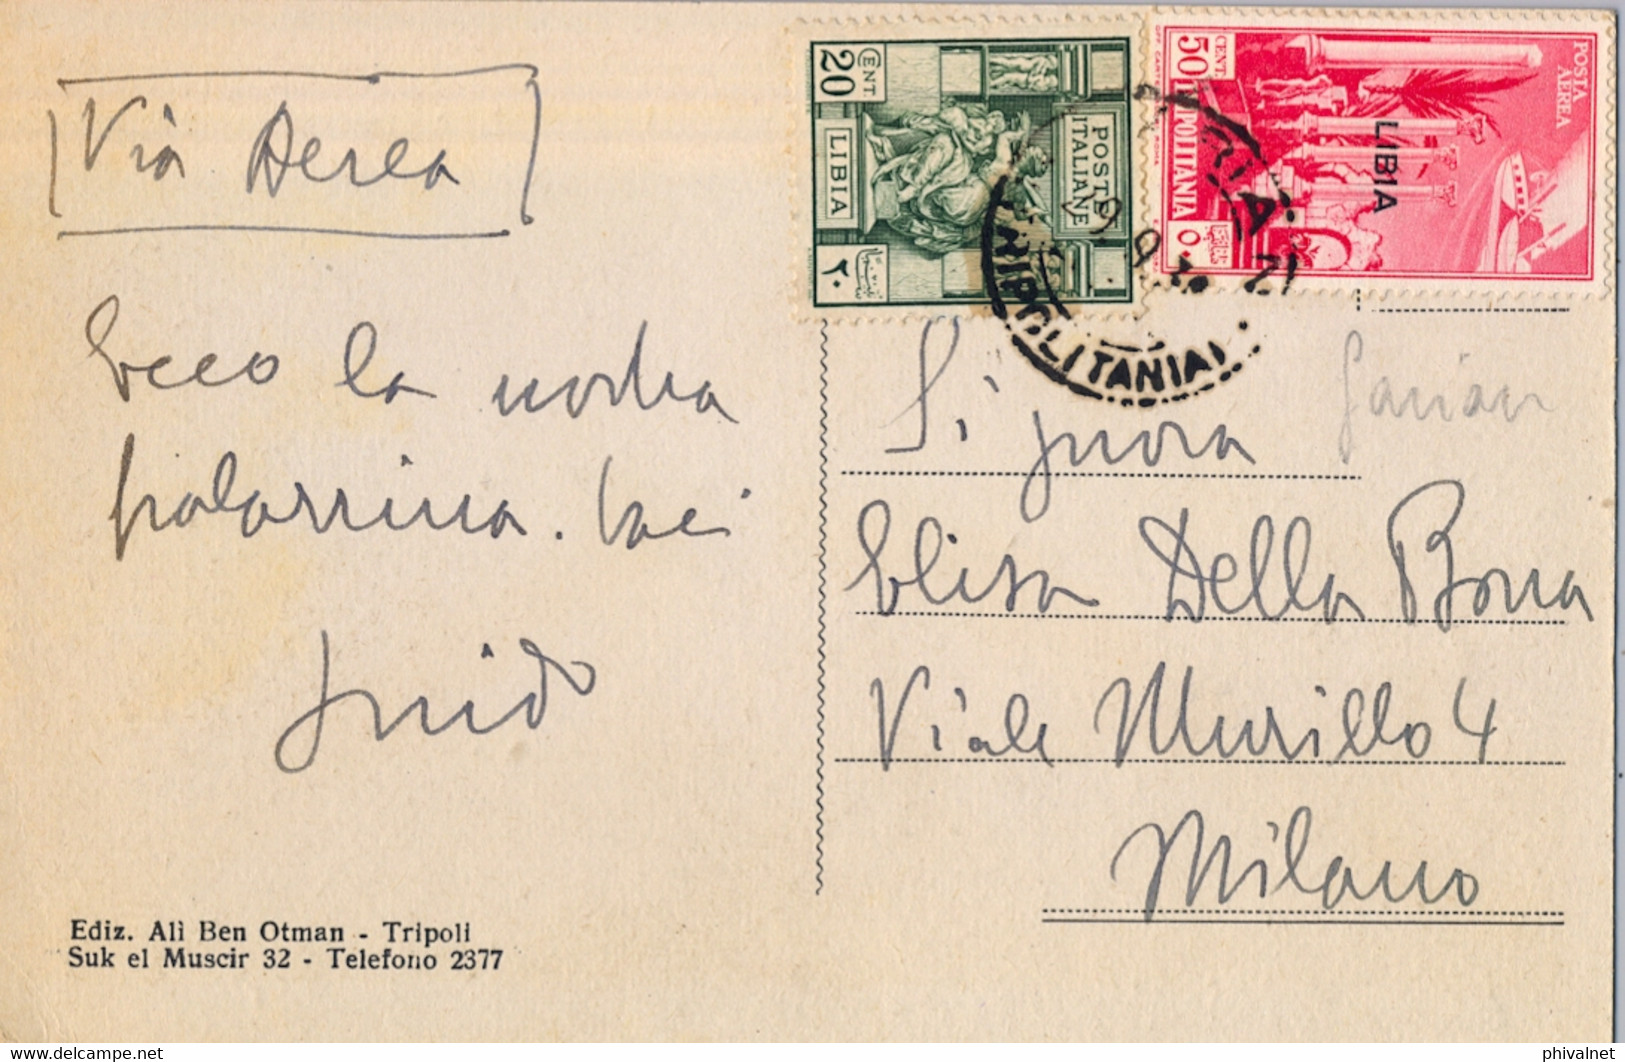 Via Aerea
Ecco la nostra
palazzina. Baci
Guido
Ediz. Alì Ben Otman - Tripoli
Suk el Muscir 32 - Telefono 2377
20 CENT.
LIBIA
POSTE
ITALIANE
٢٠
50 CENT.
TRIPOLITANIA
LIBIA
POSTA
AEREA
٥٠
TRIPOLITANIA
Signora
Elisa Della Bona
Viale Murillo 4
Milano
phivalnet